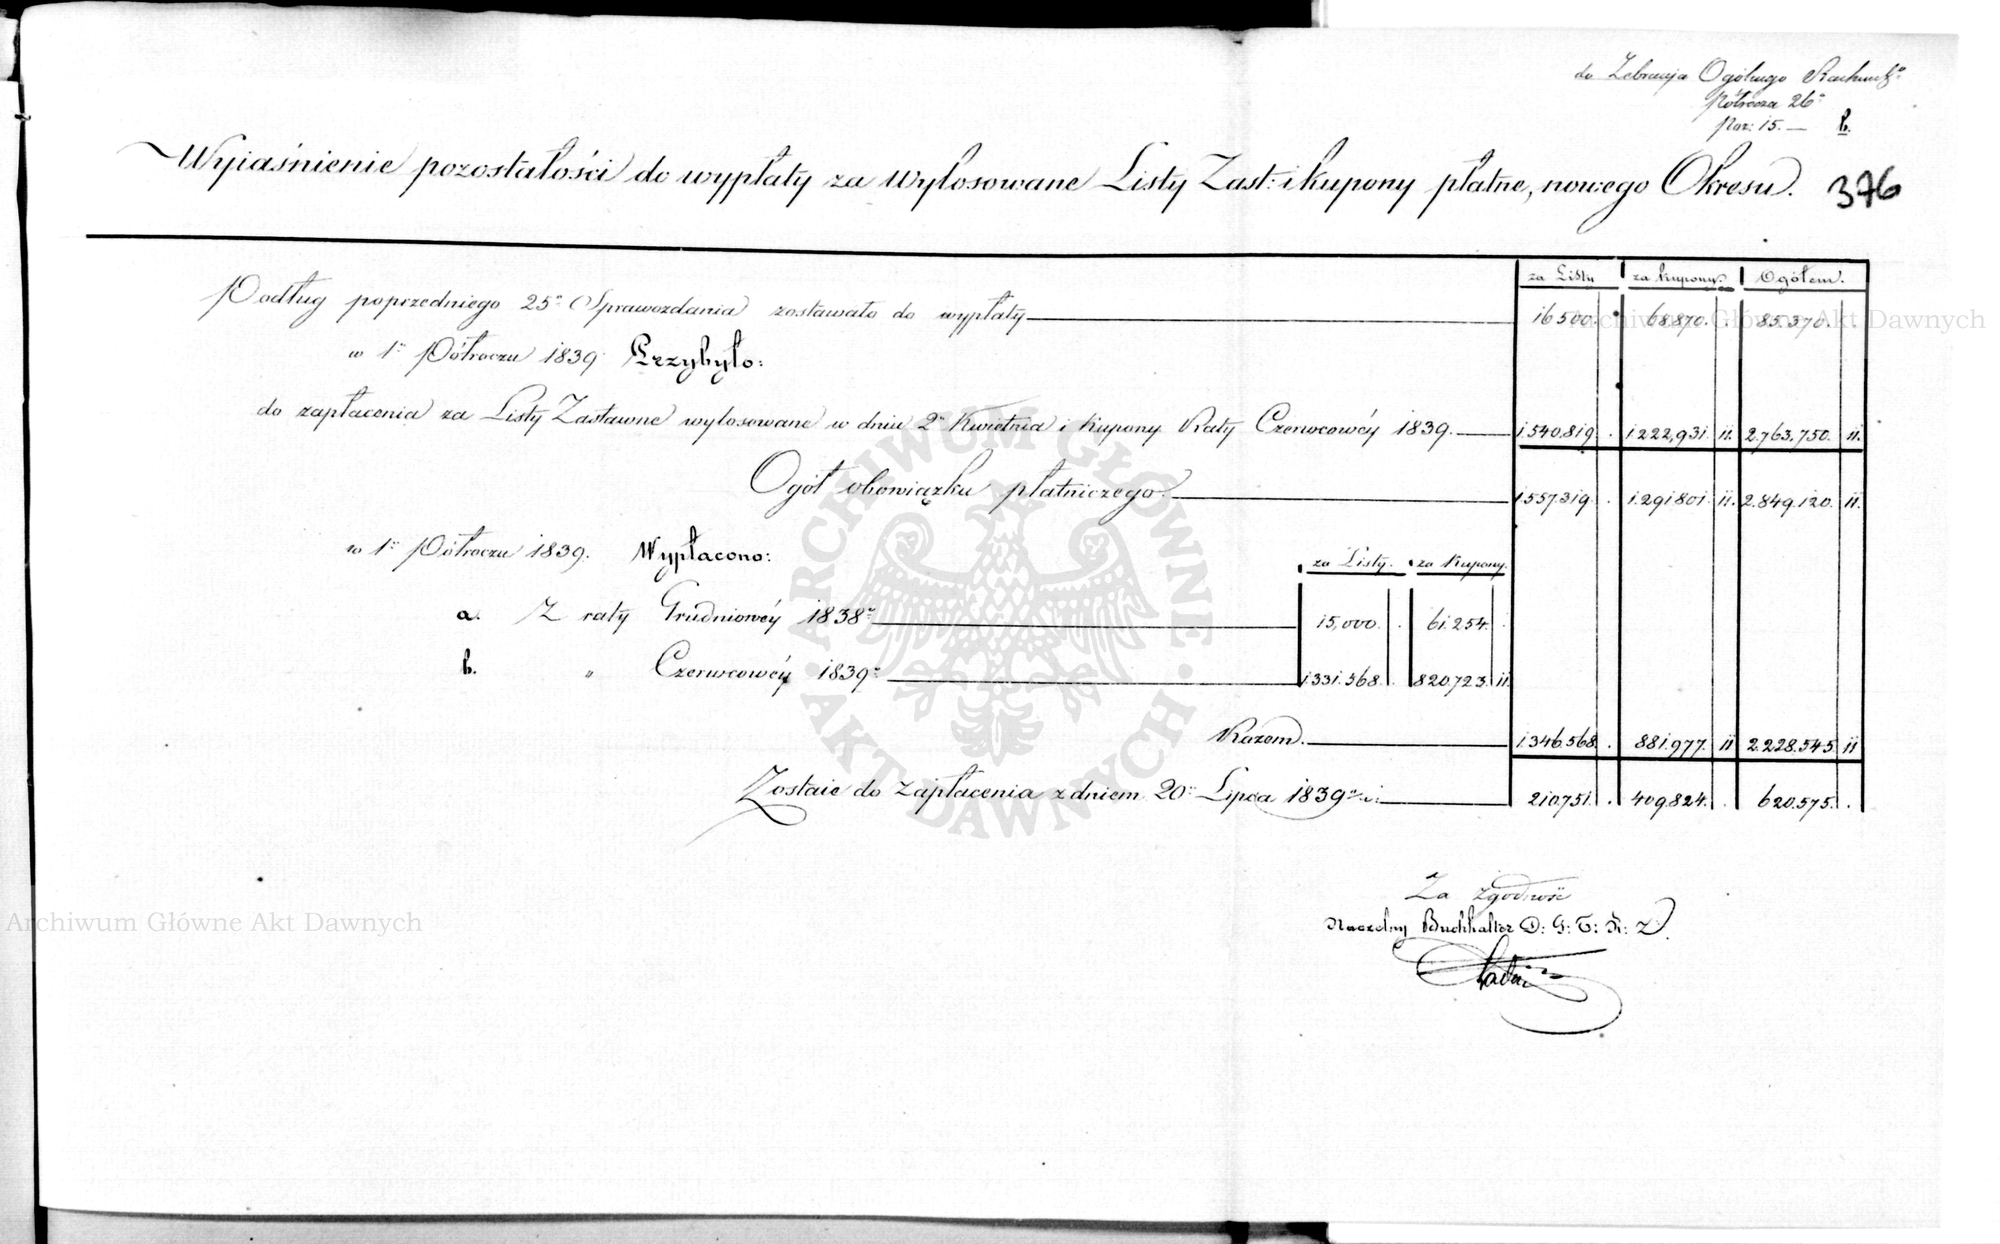 do Zebrania Ogólnego Rachunk:
Półrocza 26º
Poz: 15. — b.
Wyiaśnienie pozostałości do wypłaty za wylosowane Listy Zast: i kupony płatne, nowego Okresu. 376
za Listy za kupony. Ogółem.
Podług poprzedniego 25º Sprawozdania zostawało do wypłaty 16500. . 68.870. . 85.370. .
w 1m Półroczu 1839 Przybyło:
do zapłacenia za Listy Zastawne wylosowane w dniu 2º Kwietnia i kupony Raty Czerwcowéy 1839. 1.540.819. . 1.222,931. 11. 2.763.750. 11.
Ogół obowiązku płatniczego. 1.557.319. . 1.291.801. 11. 2.849.120. 11.
w 1m Półroczu 1839. Wypłacono:
za Listy. za Kupony.
a. Z raty Grudniowéy 1838º 15,000. . 61.254. .
b. " Czerwcowéy 1839º 1.331.568. . 820.723. 11.
Razem. 1.346.568. . 881.977. 11 2.228.545 11
Zostaie do zapłacenia z dniem 20º Lipca 1839º 210.751. . 409.824. . 620.575. .
Za zgodność
Naczelny Buchhalter D: G: T: K: Z.
Archiwum Główne Akt Dawnych
Archiwum Główne Akt Dawnych
ARCHIWUM GŁÓWNE · AKT DAWNYCH ·